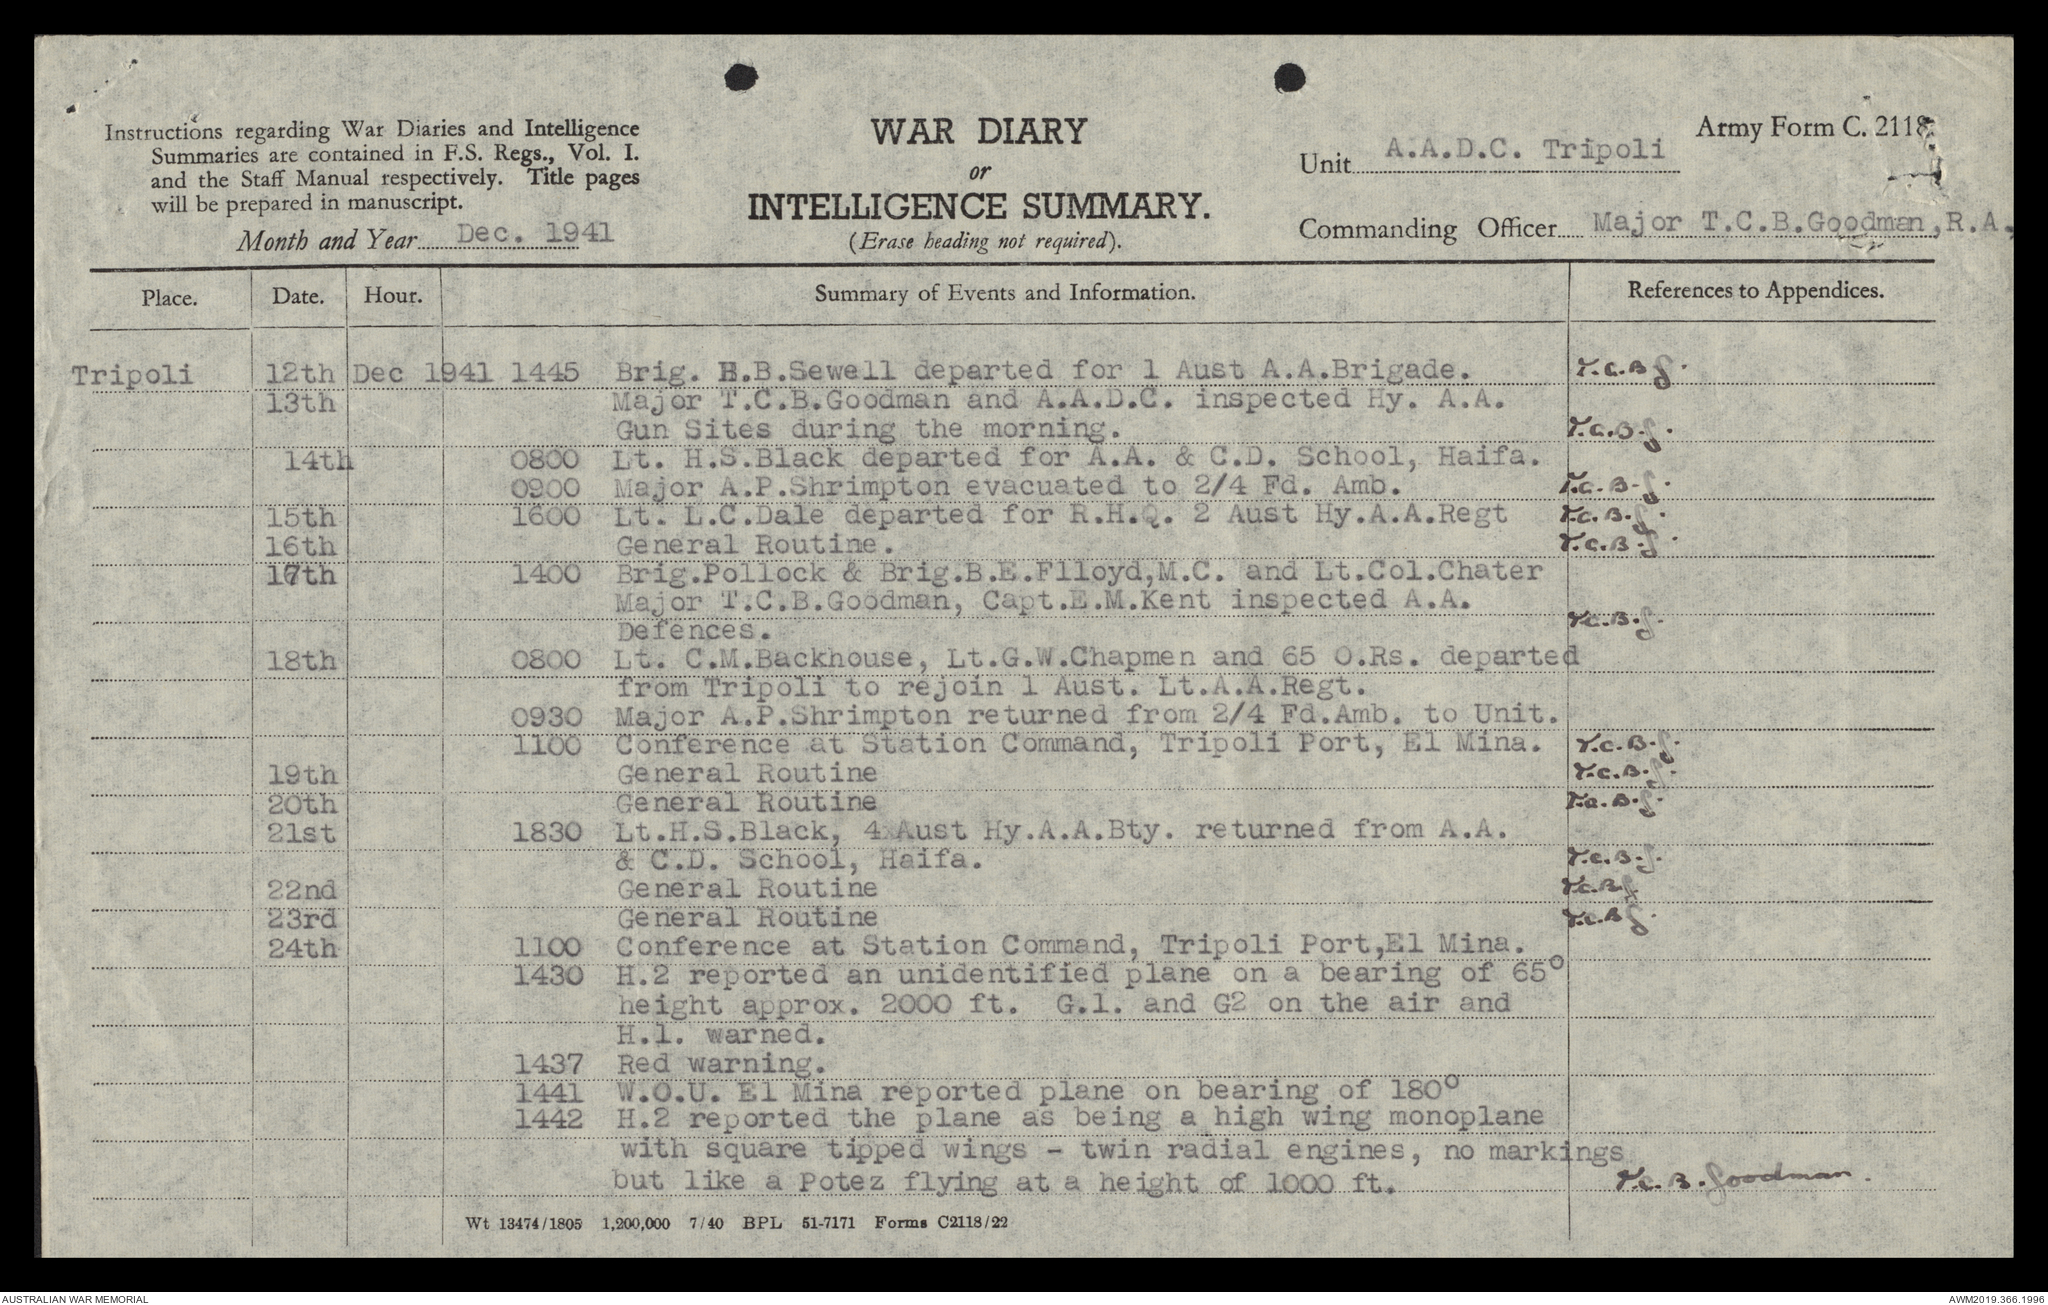 Instructions regarding War Diaries and Intelligence
Summaries are contained in F.S. Regs., Vol. I.
and the Staff Manual respectively. Title pages
will be prepared in manuscript.
Month and Year Dec. 1941
WAR DIARY
or
INTELLIGENCE SUMMARY.
(Erase heading not required).
Army Form C. 2118.
Unit A.A.D.C. Tripoli
Commanding Officer Major T.C.B.Goodman,R.A.
Place. Date. Hour. Summary of Events and Information. References to Appendices.
Tripoli 12th Dec 1941 1445 Brig. H.B.Sewell departed for 1 Aust A.A.Brigade. T.C.B.G.
13th Major T.C.B.Goodman and A.A.D.C. inspected Hy. A.A.
Gun Sites during the morning. T.C.B.G.
14th 0800 Lt. H.S.Black departed for A.A. & C.D. School, Haifa.
0900 Major A.P.Shrimpton evacuated to 2/4 Fd. Amb. T.C.B.G.
15th 1600 Lt. L.C.Dale departed for R.H.Q. 2 Aust Hy.A.A.Regt T.C.B.G.
16th General Routine. T.C.B.G.
17th 1400 Brig.Pollock & Brig.B.E.Flloyd,M.C. and Lt.Col.Chater
Major T.C.B.Goodman, Capt.E.M.Kent inspected A.A.
Defences. T.C.B.G.
18th 0800 Lt. C.M.Backhouse, Lt.G.W.Chapmen and 65 O.Rs. departed
from Tripoli to rejoin 1 Aust. Lt.A.A.Regt.
0930 Major A.P.Shrimpton returned from 2/4 Fd.Amb. to Unit.
1100 Conference at Station Command, Tripoli Port, El Mina. T.C.B.G.
19th General Routine T.C.B.G.
20th General Routine T.C.B.G.
21st 1830 Lt.H.S.Black, 4 Aust Hy.A.A.Bty. returned from A.A.
& C.D. School, Haifa. T.C.B.G.
22nd General Routine T.C.B.G.
23rd General Routine T.C.B.G.
24th 1100 Conference at Station Command, Tripoli Port,El Mina.
1430 H.2 reported an unidentified plane on a bearing of 65°
height approx. 2000 ft. G.1. and G2 on the air and
H.1. warned.
1437 Red warning.
1441 W.O.U. El Mina reported plane on bearing of 180°
1442 H.2 reported the plane as being a high wing monoplane
with square tipped wings - twin radial engines, no markings
but like a Potez flying at a height of 1000 ft. T.C.B. Goodman.
Wt 13474/1805 1,200,000 7/40 BPL 51-7171 Forms C2118/22
AUSTRALIAN WAR MEMORIAL
AWM2019.366.1996